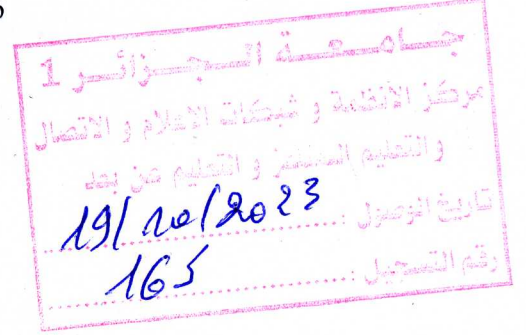 جـــامـــعـــة الـــجـــزائـــر 1
مركز الأنظمة و شبكات الإعلام و الاتصال
و التعليم المتلفز و التعليم عن بعد
تاريخ الوصول : 19/10/2023
رقم التسجيل : 165